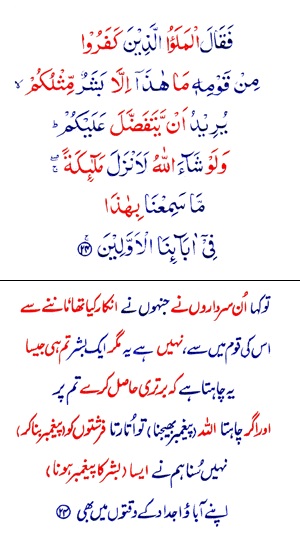 فَقَالَ الْمَلَؤُا الَّذِيْنَ كَفَرُوْا
مِنْ قَوْمِهٖ مَا هٰذَاۤ اِلَّا بَشَرٌ مِّثْلُكُمْ ۙ
يُرِيْدُ اَنْ يَّتَفَضَّلَ عَلَيْكُمْ ؕ
وَلَوْ شَآءَ اللّٰهُ لَاَنْزَلَ مَلٰٓئِكَةً ۖۚ
مَّا سَمِعْنَا بِهٰذَا
فِيْۤ اٰبَآئِنَا الْاَوَّلِيْنَ ۚ﴿۲۴﴾
تو کہا اُن سرداروں نے جنہوں نے انکار کیا تھا ماننے سے
اس کی قوم میں سے، نہیں ہے یہ مگر ایک بشر تم ہی جیسا
یہ چاہتا ہے کہ برتری حاصل کرے تم پر
اور اگر چاہتا اللہ (پیغمبر بھیجنا) تو اُتارتا فرشتوں کو (پیغمبر بنا کر)
نہیں سُنا ہم نے ایسا (بشر کا پیغمبر ہونا)
اپنے آباؤ اجداد کے وقتوں میں بھی ﴿۲۴﴾